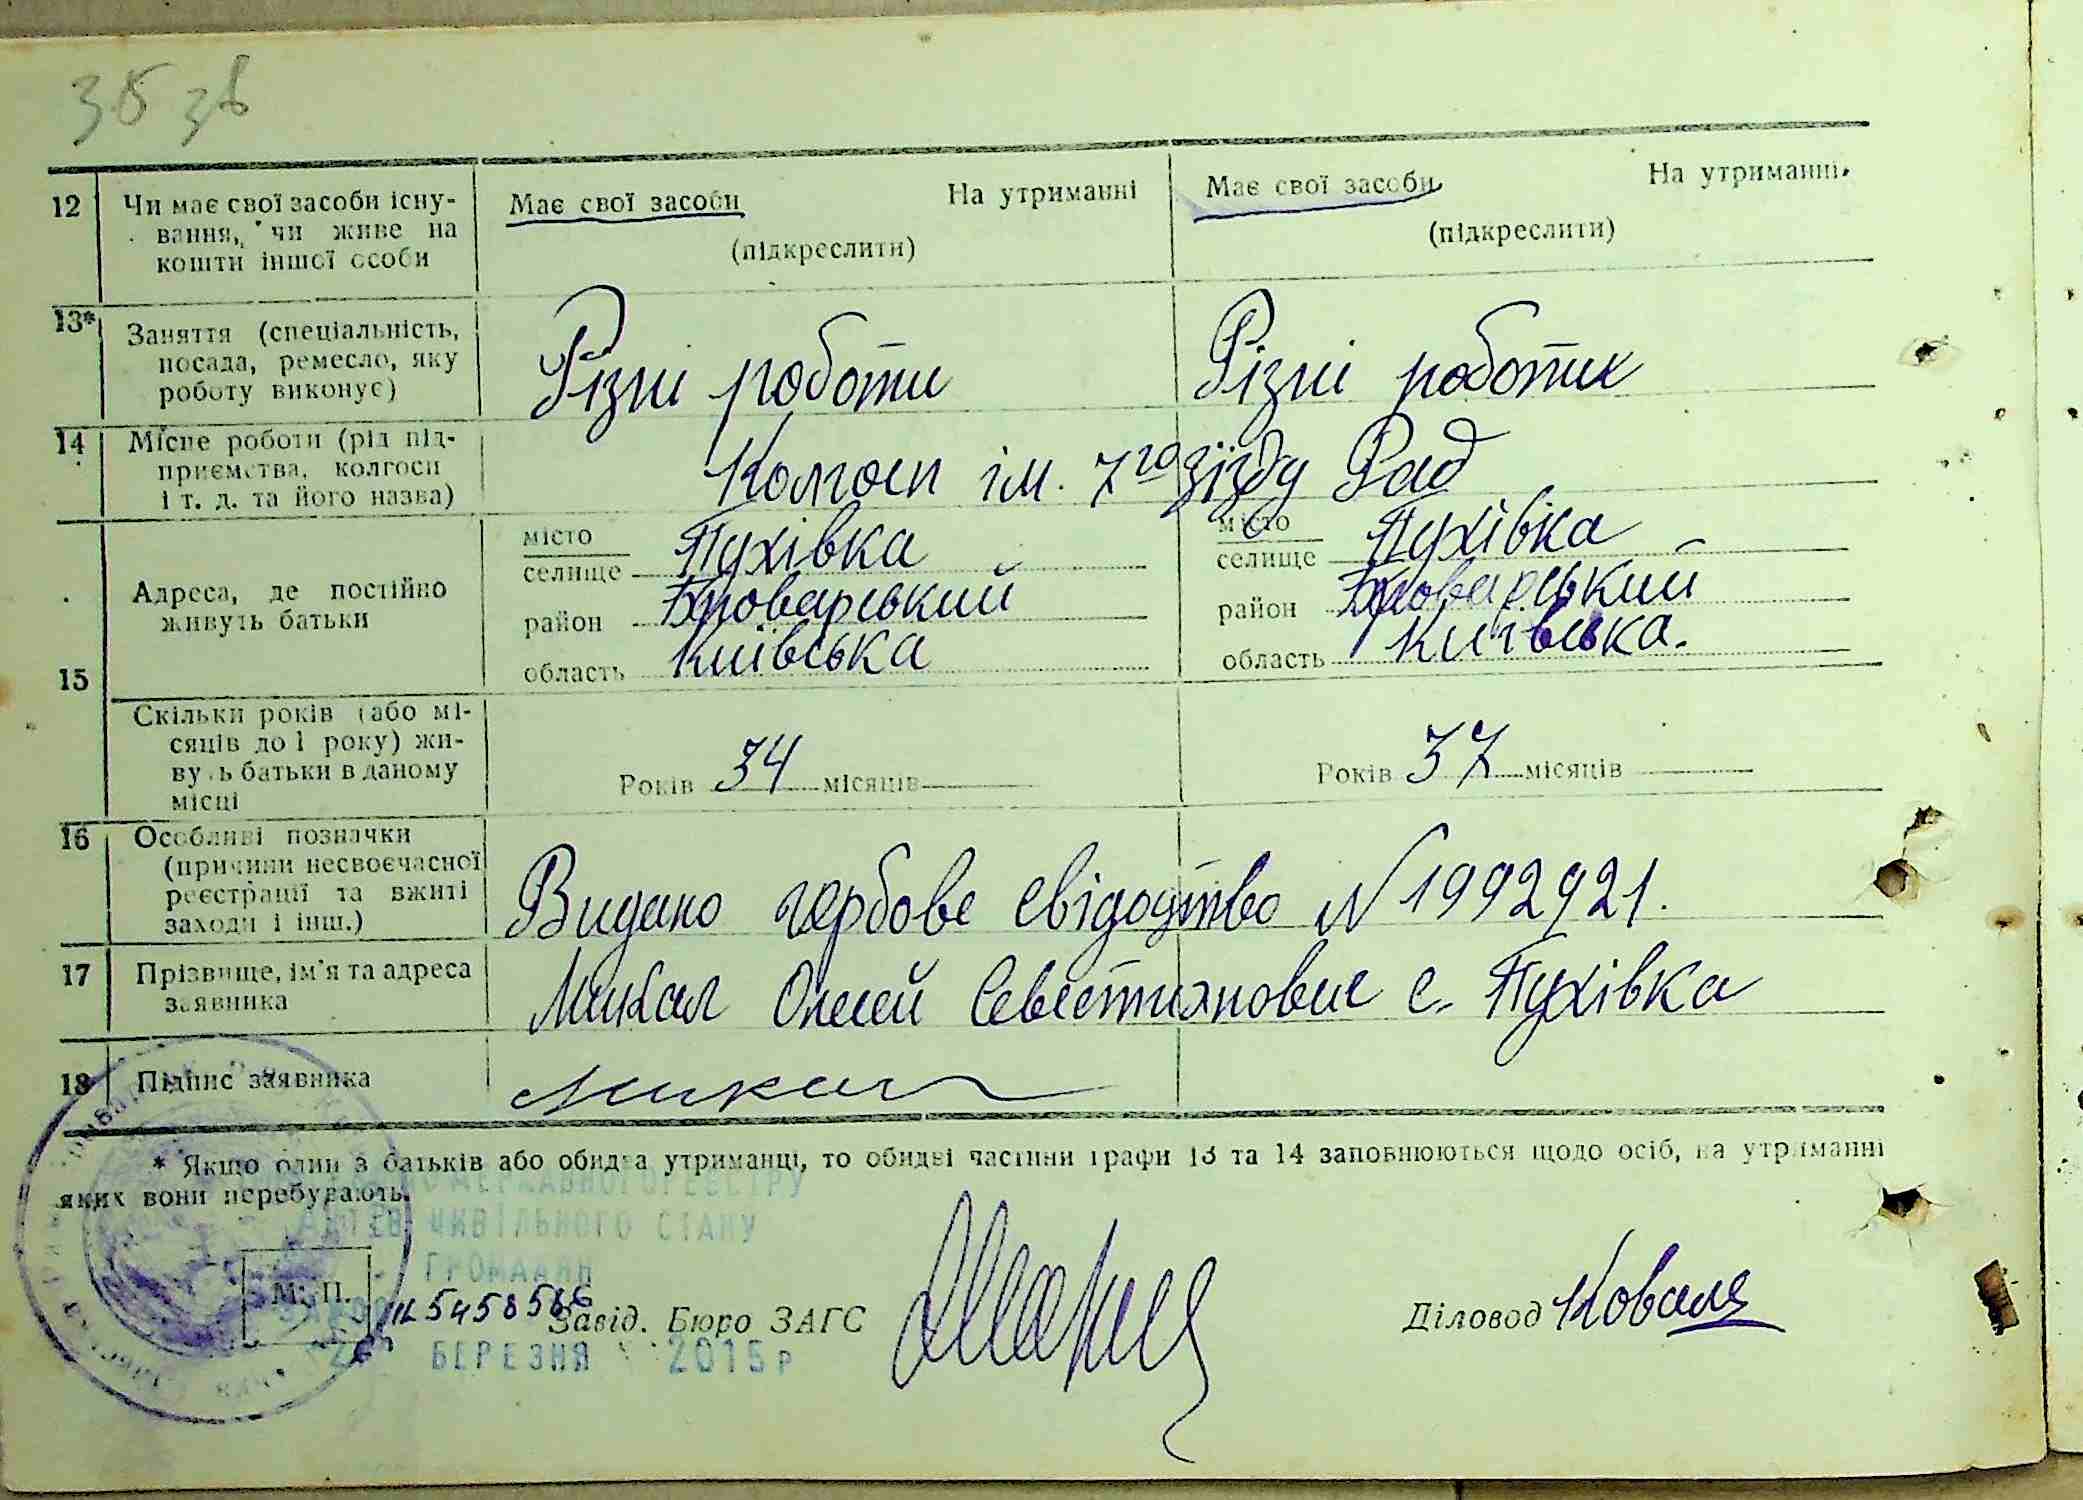 35 зв
12 Чи має свої засоби існу-
вання, чи живе на
кошти іншої особи
Має свої засоби На утриманні
(підкреслити)
Має свої засоби На утриманні
(підкреслити)
13* Заняття (спеціальність,
посада, ремесло, яку
роботу виконує)
Різні роботи
Різні роботи
14 Місце роботи (рід під-
приємства, колгосп
і т. д. та його назва)
Колгосп ім. 7го зізду Рад
15 Адреса, де постійно
живуть батьки
місто
селище Пухівка
район Броварський
область Київська
місто
селище Пухівка
район Броварський
область Київська.
Скільки років (або мі-
сяців до 1 року) жи-
вуть батьки в даному
місці
Років 34 місяців
Років 37 місяців
16 Особливі позначки
(причини несвоєчасної
реєстрації та вжиті
заходи і інш.)
Видано гербове свідоцтво N 1992921.
17 Прізвище, ім'я та адреса
заявника
Микал Олексій Севастянович с. Пухівка
18 Підпис заявника
Микал
* Якщо один з батьків або обидва утриманці, то обидві частини графи 13 та 14 заповнюються щодо осіб, на утриманні
яких вони перебувають.
ДЕРЖАВНОГО РЕЄСТРУ
АКТІВ ЦИВІЛЬНОГО СТАНУ
ГРОМАДЯН
М. П.
Завід. Бюро ЗАГС
Діловод Коваль
26 БЕРЕЗНЯ 2015 р